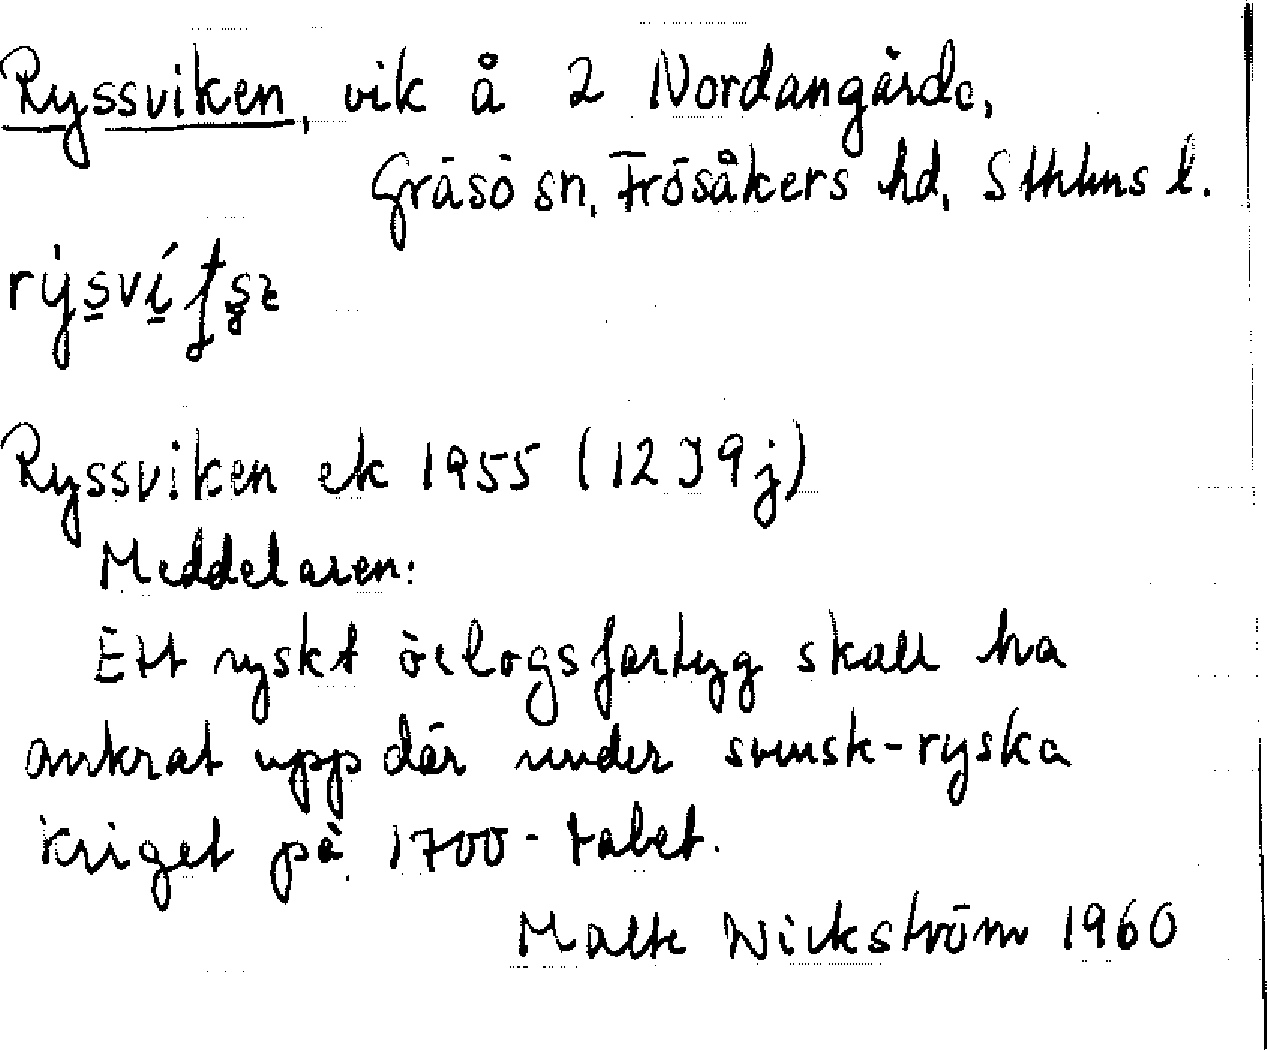 Ryssviken, vik å 2 Nordangärde,
Gräsö sn, Frösåkers hd, Sthlms l.
Ryssviken ek 1955 (12 J 9 j)
Meddelaren:
Ett ryskt örlogsfartyg skall ha
ankrat upp där under svensk-ryska
kriget på 1700-talet.
Malte Wickström 1960